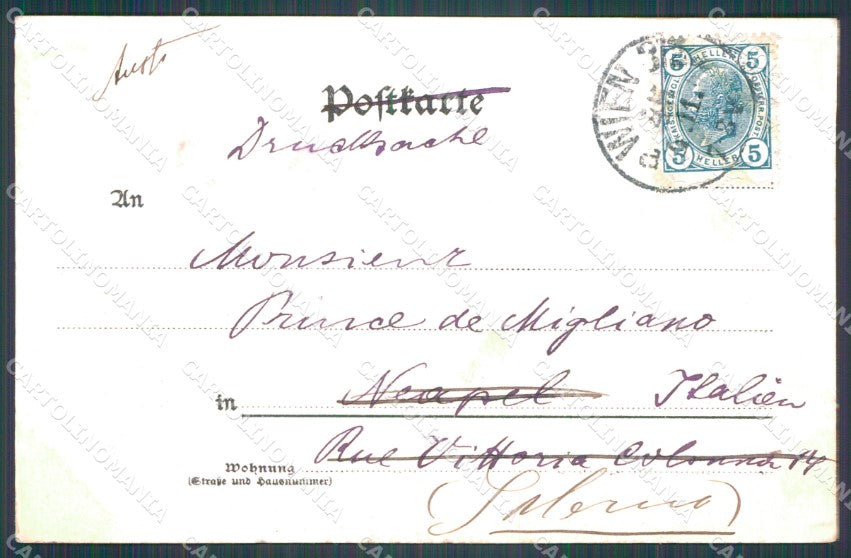 Postkarte
Drucksache
WIEN
5 HELLER 5
5 HELLER 5
An
Monsieur
Prince de Migliano
in Neapel Italien
Rue Vittoria Colonna 14
Wohnung
(Straße und Hausnummer)
(Salerno)
CARTOLINOMANIA